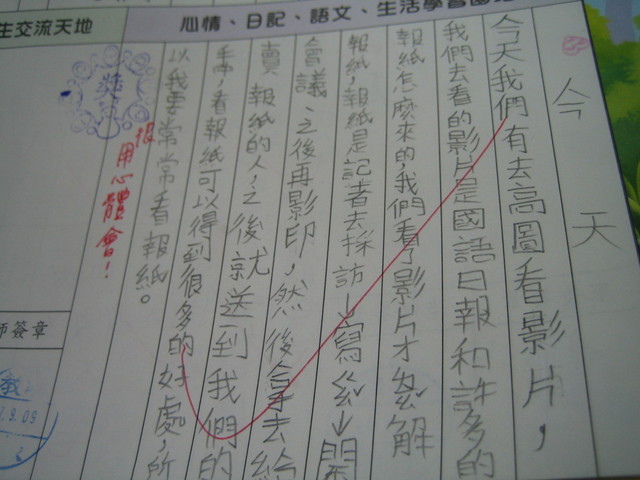 心情、日記、語文、生活學習園地
生交流天地
今天
今天我們有去高圖看影片，
我們去看的影片是國語日報和許多的
報紙怎麼來的，我們看了影片才
解
報紙，報紙是記者去採訪↓寫
↓開
會議、之後再影印，然後拿去給
賣報紙的人，之後就送到我們的
手中，看報紙可以得到很多的好處，所
以我要常常看報紙。
用心體會！
師簽章
9.09